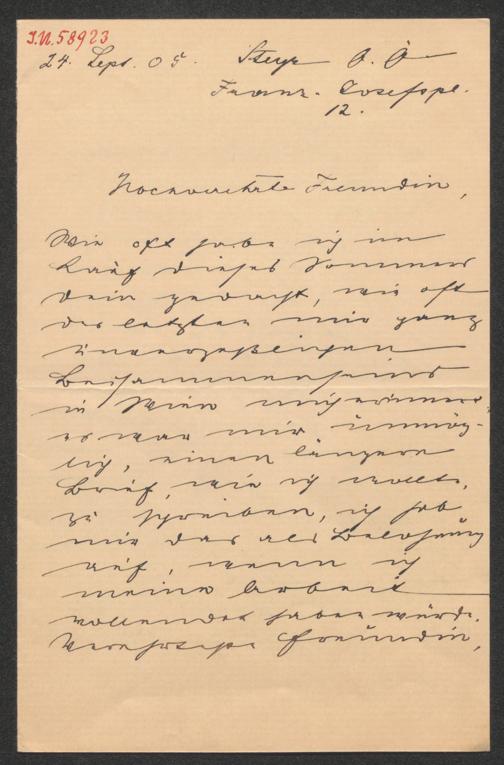 I.N. 58923
24. Sept. 05. Steyr O. Ö.
Franz-Josefspl.
12.
Hochverehrte Freundin,
Wie oft habe ich im
Lauf dieses Sommers
Dein gedacht, wie oft
des letzten mir ganz
unvergeßlichen
Beisammenseins
in Wien mich erinnert,
es war mir unmög-
lich, einen längeren
Brief, wie ich wollte,
zu schreiben, ich hob
mir das als Belohnung
auf, wenn ich
meine Arbeit
vollendet haben würde.
Verehrteste Freundin,